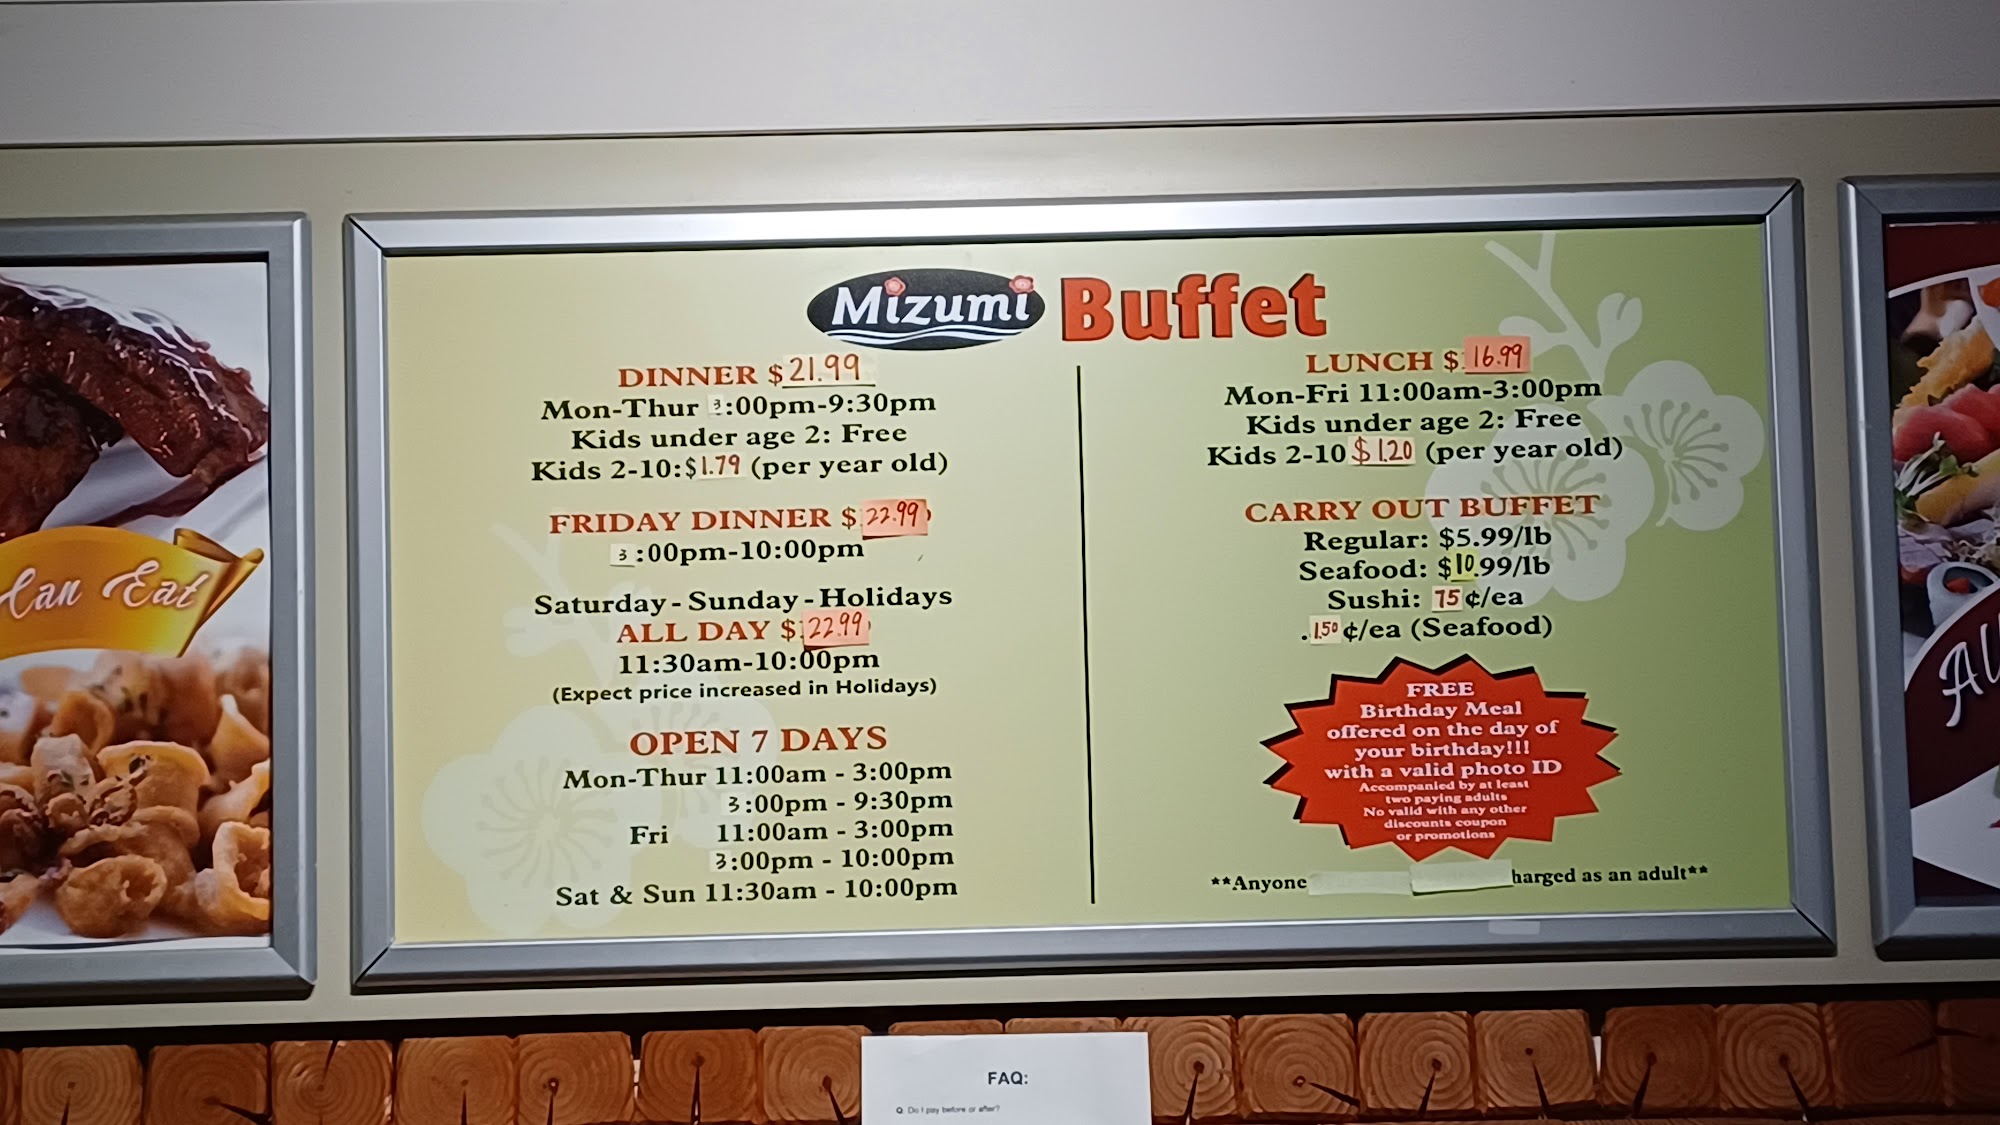 Mizumi Buffet
DINNER $21.99
Mon-Thur 3:00pm-9:30pm
Kids under age 2: Free
Kids 2-10:$1.79 (per year old)
FRIDAY DINNER $22.99
3:00pm-10:00pm
Saturday - Sunday - Holidays
ALL DAY $22.99
11:30am-10:00pm
(Expect price increased in Holidays)
OPEN 7 DAYS
Mon-Thur 11:00am - 3:00pm
3:00pm - 9:30pm
Fri 11:00am - 3:00pm
3:00pm - 10:00pm
Sat & Sun 11:30am - 10:00pm
LUNCH $16.99
Mon-Fri 11:00am-3:00pm
Kids under age 2: Free
Kids 2-10 $1.20 (per year old)
CARRY OUT BUFFET
Regular: $5.99/lb
Seafood: $10.99/lb
Sushi: 75¢/ea
.1.50¢/ea (Seafood)
FREE
Birthday Meal
offered on the day of
your birthday!!!
with a valid photo ID
Accompanied by at least
two paying adults
No valid with any other
discounts coupon
or promotions
**Anyone harged as an adult**
Can Eat
FAQ:
Q: Do I pay before or after?